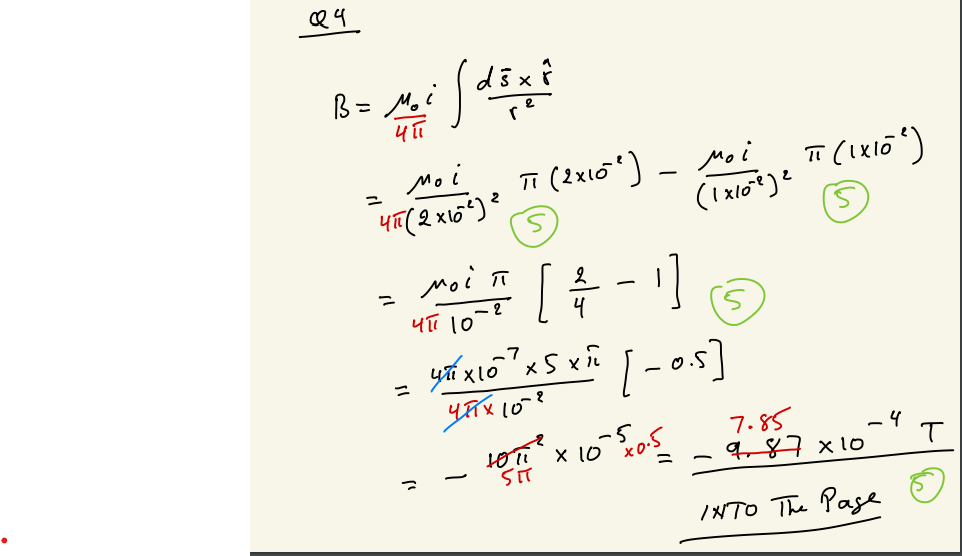 Q4
B = μ₀i/4π ∫ ds̄ × r̂ / r²
= μ₀i / 4π(2×10⁻²)² π(2×10⁻²) − μ₀i / (1×10⁻²)² π(1×10⁻²)
5 5
= μ₀i π / 4π 10⁻² [2/4 − 1] 5
= 4π×10⁻⁷ × 5 × π / 4π× 10⁻² [−0.5]
= − 10π² 5π × 10⁻⁵ ×0.5 = − 9.87 7.85 ×10⁻⁴ T
INTO The Page 5